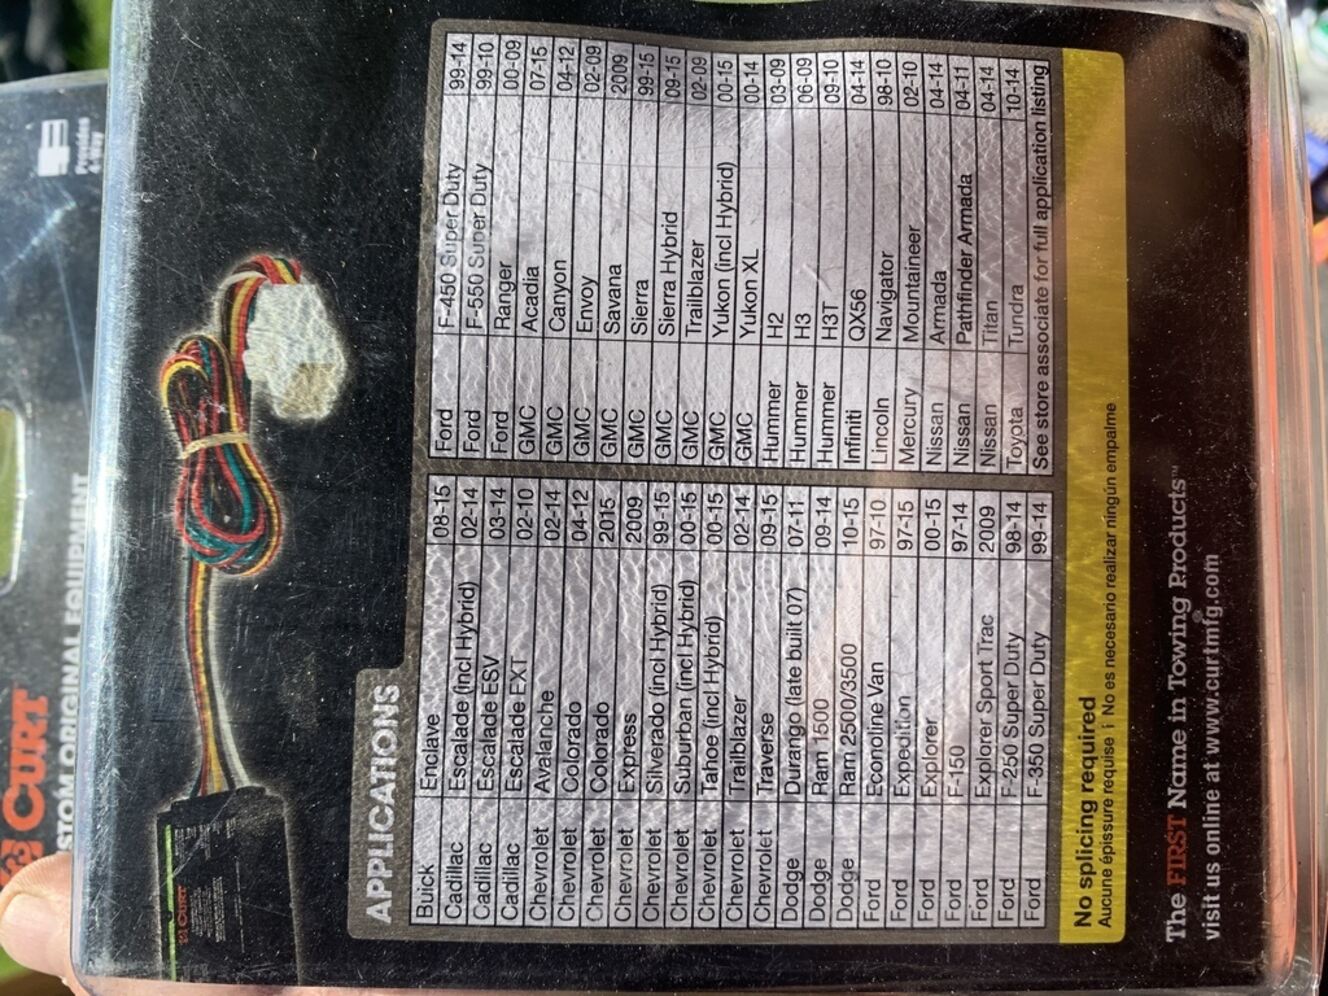 CURT
STOM ORIGINAL EQUIPMENT
CURT
APPLICATIONS
Buick Enclave 08-15
Cadillac Escalade (incl Hybrid) 02-14
Cadillac Escalade ESV 03-14
Cadillac Escalade EXT 02-10
Chevrolet Avalanche 02-14
Chevrolet Colorado 04-12
Chevrolet Colorado 2015
Chevrolet Express 2009
Chevrolet Silverado (incl Hybrid) 99-15
Chevrolet Suburban (incl Hybrid) 00-15
Chevrolet Tahoe (incl Hybrid) 00-15
Chevrolet Trailblazer 02-14
Chevrolet Traverse 09-15
Dodge Durango (late built 07) 07-11
Dodge Ram 1500 09-14
Dodge Ram 2500/3500 10-15
Ford Econoline Van 97-10
Ford Expedition 97-15
Ford Explorer 00-15
Ford F-150 97-14
Ford Explorer Sport Trac 2009
Ford F-250 Super Duty 98-14
Ford F-350 Super Duty 99-14
Ford F-450 Super Duty 99-14
Ford F-550 Super Duty 99-10
Ford Ranger 00-09
GMC Acadia 07-15
GMC Canyon 04-12
GMC Envoy 02-09
GMC Savana 2009
GMC Sierra 99-15
GMC Sierra Hybrid 09-15
GMC Trailblazer 02-09
GMC Yukon (incl Hybrid) 00-15
GMC Yukon XL 00-14
Hummer H2 03-09
Hummer H3 06-09
Hummer H3T 09-10
Infiniti QX56 04-14
Lincoln Navigator 98-10
Mercury Mountaineer 02-10
Nissan Armada 04-14
Nissan Pathfinder Armada 04-11
Nissan Titan 04-14
Toyota Tundra 10-14
See store associate for full application listing
No splicing required
Aucune épissure requise ¡ No es necesario realizar ningún empalme
The FIRST Name in Towing Products™
visit us online at www.curtmfg.com